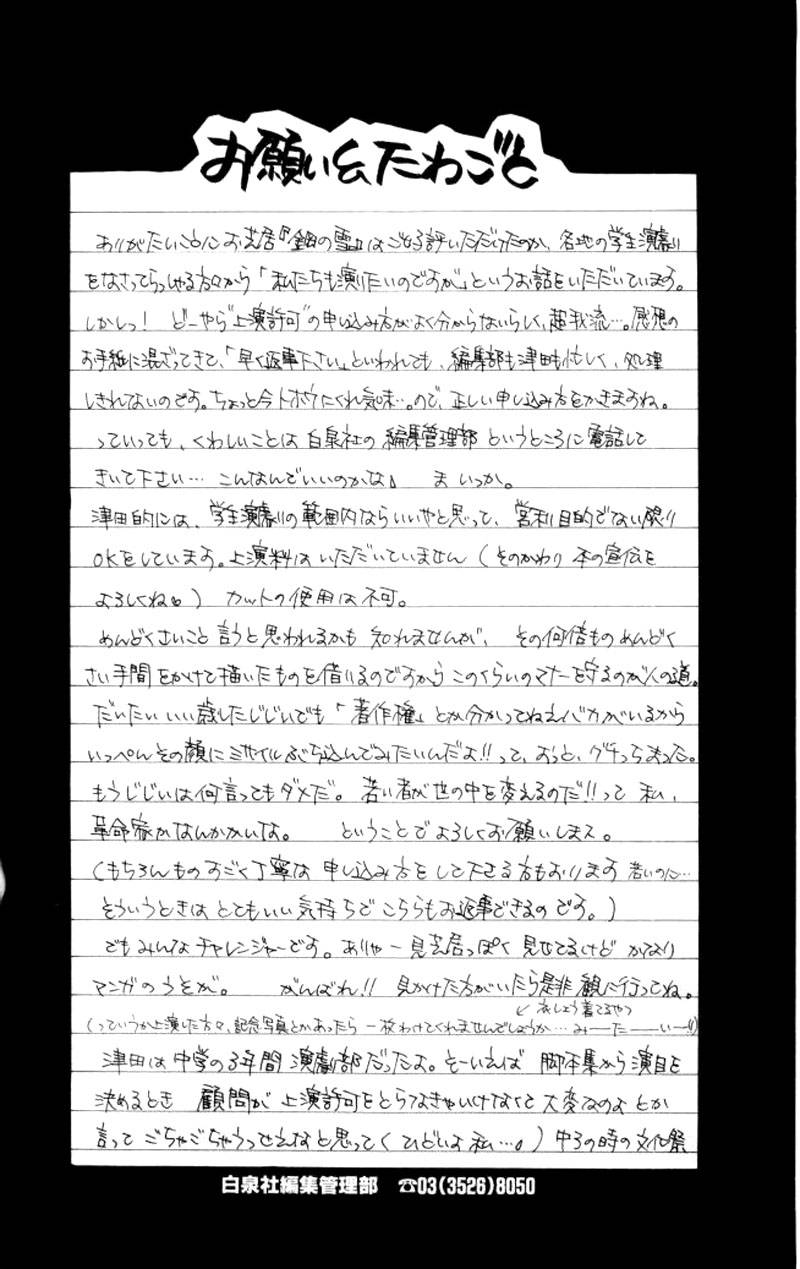 お願い&たわごと
ありがたいことにお芝居『金田の雪』はご好評いただけたのか、各地の学生演劇
をなさってらっしゃる方々から「私たちも演りたいのですが」というお話をいただいています。
しかしっ! どーやら"上演許可"の申し込み方がよく分からないらしく、超我流…。感想の
お手紙に混ざってきて、「早く返事下さい」といわれても、編集部も津田も忙しく、処理
しきれないのです。ちょっと今トホウにくれ気味…。ので、正しい申し込み方をかきますね。
っていっても、くわしいことは 白泉社の 編集管理部 というところに電話して
きいて下さい… こんなんでいいのかな。 ま いっか。
津田的には、学生演劇の範囲内ならいいやと思って、営利目的でない限り
OKをしています。上演料は いただいていません (そのかわり 本の宣伝を
よろしくね。) カットの使用は不可。
めんどくさいこと 言うと思われるかも 知れませんが、 その何倍ものめんどく
さい手間をかけて描いたものを借りるのですから このくらいのマナーを守るのが人の道。
だいたい いい歳したじじいでも 「著作権」とか分かってねえバカがいるから
いっぺんその顔にミサイルぶち込んでみたいんだよ!!って、おっと、グチっちまった。
もうじじいは何言ってもダメだ。 若い者が世の中を変えるのだ!!って 私、
革命家かなんかかいな。 ということで よろしくお願いしまス。
(もちろんものすごく丁寧な 申し込み方をして下さる方もおります 若いのに…
そういうときは とてもいい気持ちで こちらもお返事できるの です。)
でも みんな チャレンジャーです。ありゃ 一見芝居っぽく 見せてるけど かなり
マンガのうそが。 がんばれ!! 見かけた方がいたら是非 観に行ってね。
↙いしょう着てるやつ
(っていうか上演した方々、記念写真とかあったら 一枚わけてくれませんでしょうか… みーたーいー!!)
津田は中学の3年間 演劇部だったよ。そーいえば 脚本集から演目を
決めるとき 顧問が 上演許可をとらなきゃいけなくて 大変なのよ とか
言って ごちゃごちゃうっせえなと思ってく ひどいよ私…。) 中3の時の文化祭
白泉社編集管理部 ☎03(3526)8050